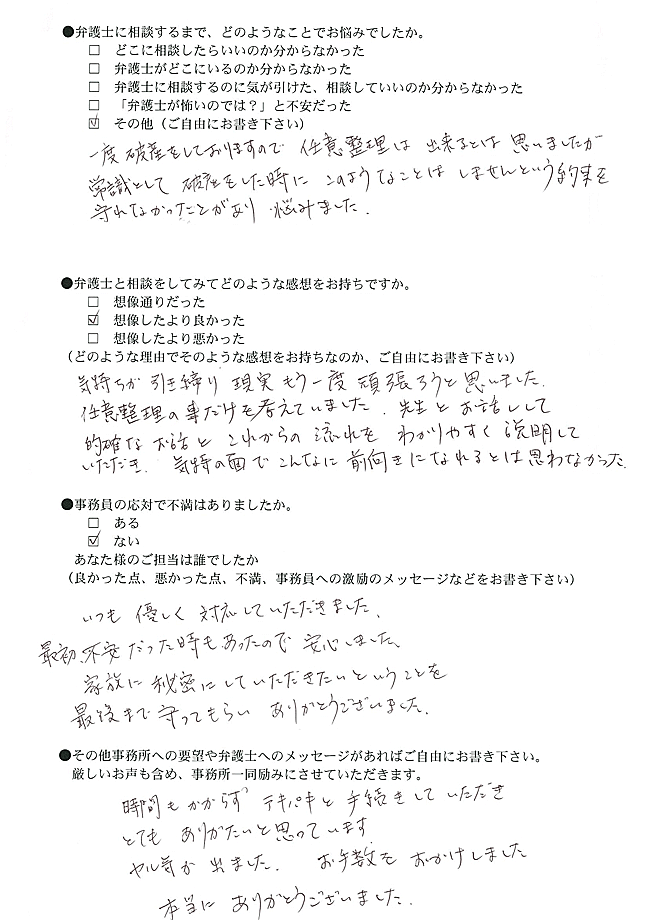 ●弁護士に相談するまで、どのようなことでお悩みでしたか。
□ どこに相談したらいいのか分からなかった
□ 弁護士がどこにいるのか分からなかった
□ 弁護士に相談するのに気が引けた、相談していいのか分からなかった
□ 「弁護士が怖いのでは?」と不安だった
☑ その他(ご自由にお書き下さい)
一度 破産をしておりますので 任意整理は 出来るとは 思いましたが
常識として 破産をした時に このようなことは しませんという約束を
守れなかったことがあり 悩みました.
●弁護士と相談をしてみてどのような感想をお持ちですか。
□ 想像通りだった
☑ 想像したより良かった
□ 想像したより悪かった
(どのような理由でそのような感想をお持ちなのか、ご自由にお書き下さい)
気持ちが 引き締り 現実 もう一度 頑張ろうと思いました.
任意整理の事だけを考えていました. 先生と お話しして
的確な お話と これからの 流れを わかりやすく 説明して
いただき. 気持の面で こんなに 前向きになれるとは思わなかった.
●事務員の応対で不満はありましたか。
□ ある
☑ ない
あなた様のご担当は誰でしたか
(良かった点、悪かった点、不満、事務員への激励のメッセージなどをお書き下さい)
いつも 優しく 対応していただきました.
最初、不安だった時もあったので 安心しました、
家族に 秘密にしていただきたいということを
最後まで 守ってもらい ありがとうございました.
●その他事務所への要望や弁護士へのメッセージがあればご自由にお書き下さい。
厳しいお声も含め、事務所一同励みにさせていただきます。
時間も かからず テキパキと 手続きして いただき
とても ありがたいと思っています
ヤル気が 出ました. お手数を おかけしました
本当に ありがとうございました.